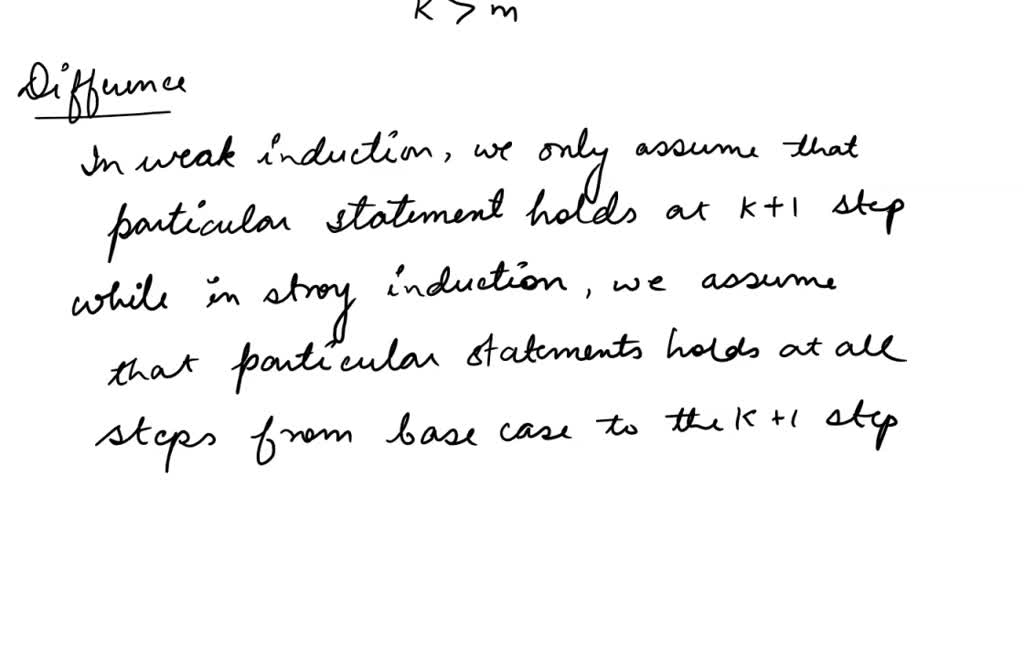 K > m
Difference
In weak induction, we only assume that
particular statement holds at k+1 step
while in strong induction, we assume
that particular statements holds at all
steps from base case to the K+1 step